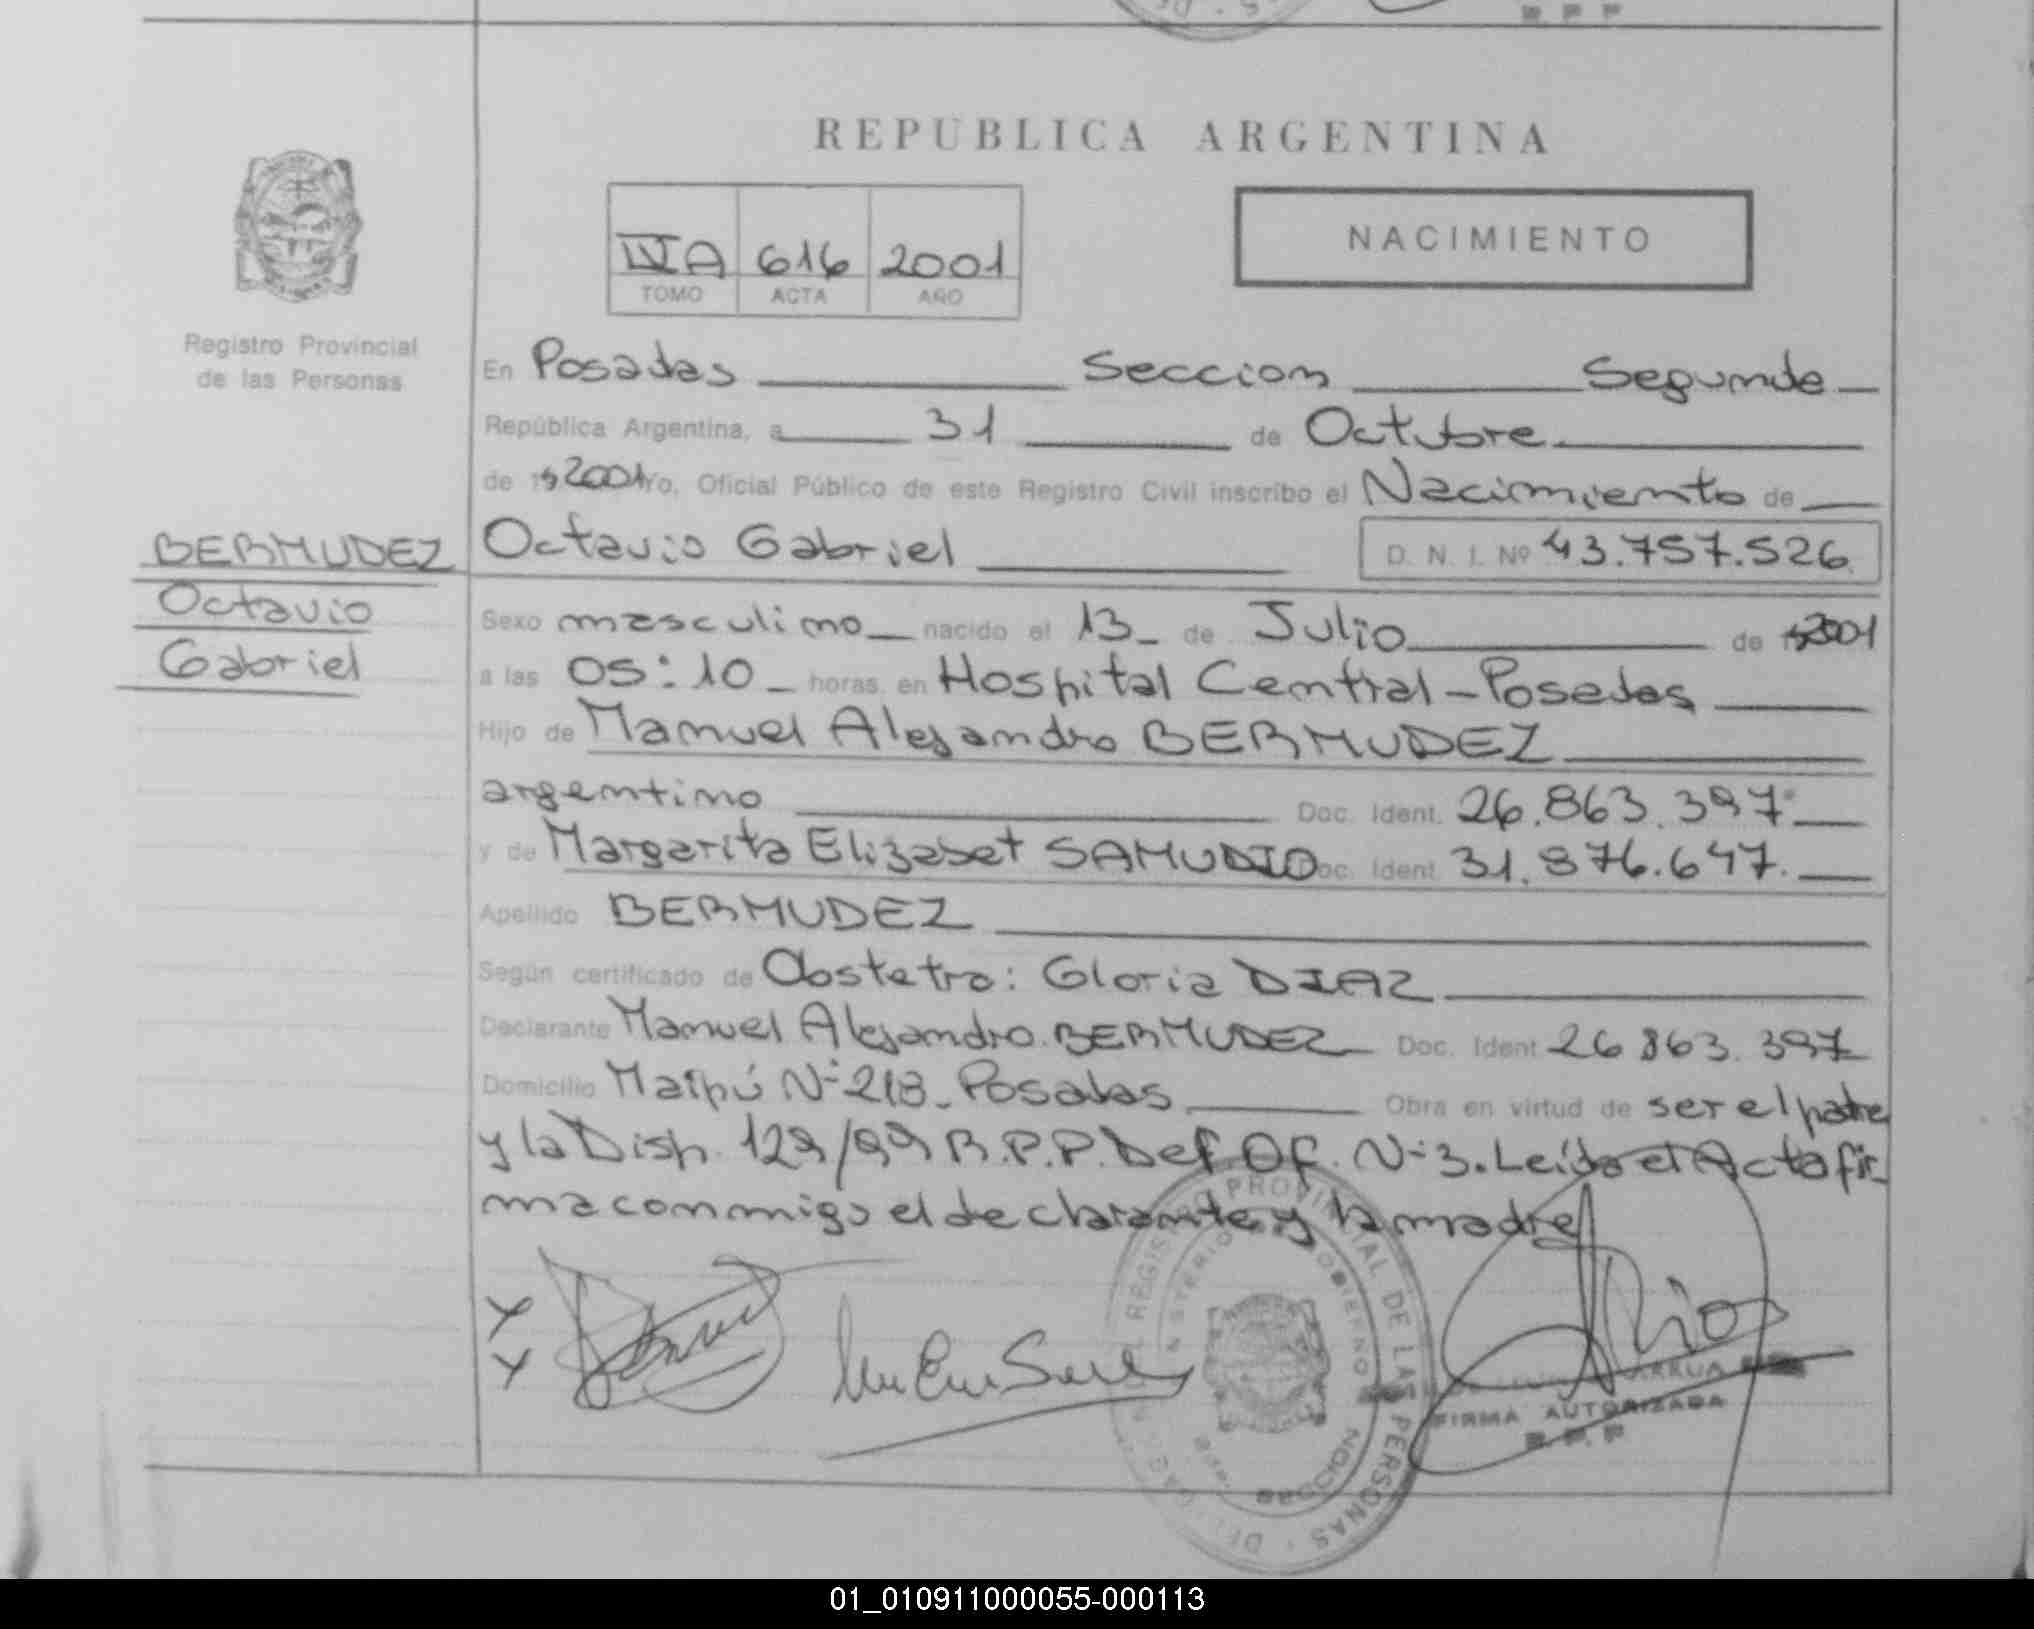 REPUBLICA ARGENTINA
Registro Provincial
de las Personas
IVA 616 2001
TOMO ACTA AÑO
NACIMIENTO
En Posadas Seccion Segunda
República Argentina, a 31 de Octubre
de 2001 Yo, Oficial Público de este Registro Civil inscribo el Nacimiento de
BERMUDEZ
Octavio
Gabriel
Octavio Gabriel D. N. I. Nº 43.757.526.
Sexo masculino nacido el 13 de Julio de 2001
a las 05:10 horas, en Hospital Central - Posadas
Hijo de Manuel Alejandro BERMUDEZ
argentino Doc. Ident. 26.863.397
y de Margarita Elizabet SAMUDIO Doc. Ident. 31.876.647.
Apellido BERMUDEZ
Según certificado de Obstetra: Gloria DIAZ
Declarante Manuel Alejandro BERMUDEZ Doc. Ident 26 863. 397
Domicilio Maipú Nº 218 - Posadas Obra en virtud de ser el padre
y la Disp. 129/99 R.P.P. Def Of. Nº 3. Leída el Acta fir
ma conmigo el declarante y la madre
REGISTRO PROVINCIAL DE LAS PERSONAS
MINISTERIO GOBIERNO
SECCION
FIRMA AUTORIZADA
R. P. P
01_010911000055-000113